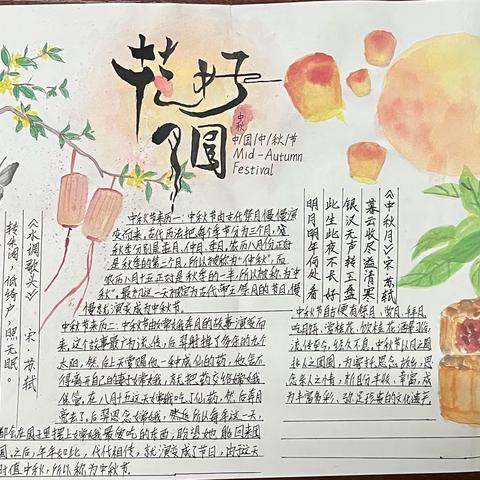 花好
月圆
中秋
中国中秋节
Mid-Autumn
Festival
《水调歌头》 宋·苏轼
转朱阁，低绮户，照无眠。
中秋节来历一：中秋节由古代祭月慢慢演
变而来，古代历法把每个年节分为三个月，定
秋季分别是孟月、仲月、季月，农历八月份正好
是秋季的第二个月，所以被称为“仲秋”，而
农历八月十五正好是秋季的一半，所以被称为“中
秋”，最初这一天被定为古代帝王祭月的节日，慢
慢就演变成为中秋节。
中秋节来历二：中秋节由嫦娥奔月的故事演变而
来，这个故事最广为流传，后羿射掉了多余的九个
太阳，然后上天赏赐他一种成仙的药，他舍不
得离开自己的妻子嫦娥，就把药交给嫦娥
保管，在八月十五这天嫦娥吃了仙药，然后奔月
亮去了，后羿思念嫦娥，然后所以每年这一天，
都会在园子里摆上嫦娥最爱吃的东西，盼望她能回来团
圆，之后，年年如此，代代相传，就演变成了节日，由于这天
时值中秋，所以称为中秋节。
《中秋月》 宋·苏轼
暮云收尽溢清寒
银汉无声转玉盘
此生此夜不长好
明月明年何处看
中秋节自古便有祭月、赏月、拜月
吃月饼、赏桂花、饮桂花酒等习俗，
流传至今，经久不息，中秋节以月之圆
兆人之团圆，为寄托思念故乡，思
念亲人之情，祈盼丰收、幸福，成
为丰富多彩、弥足珍贵的文化遗产